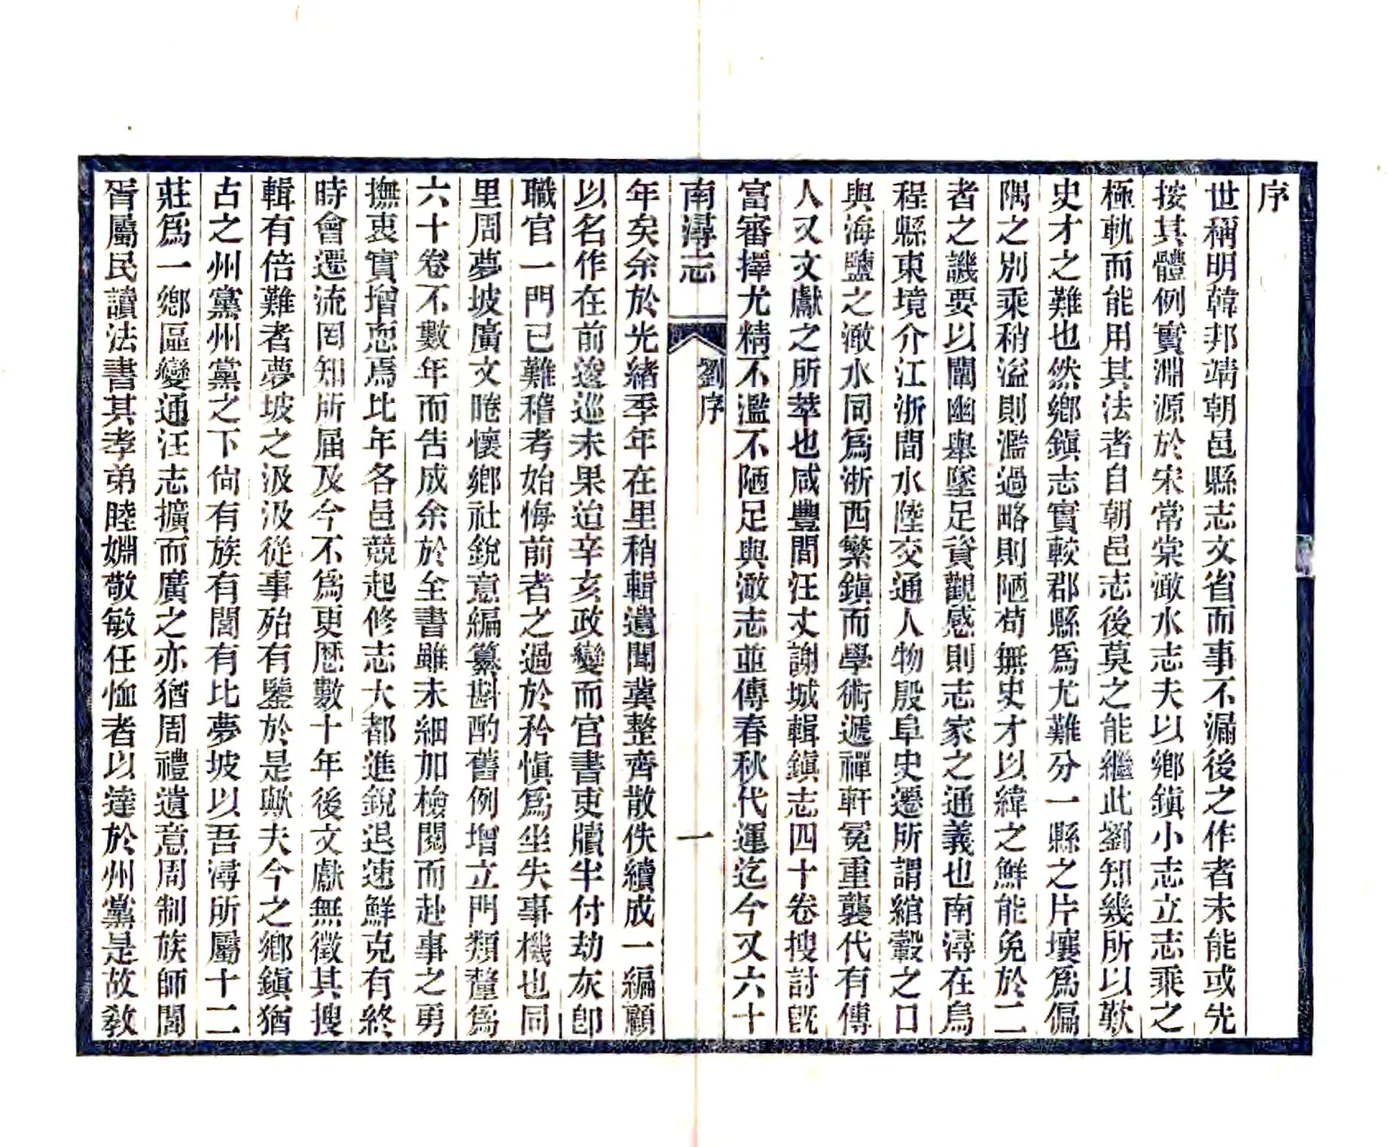 序
世稱明韓邦靖朝邑縣志文省而事不漏後之作者未能或先
按其體例實淵源於宋常棠澉水志夫以鄉鎮小志立志乘之
極軌而能用其法者自朝邑志後莫之能繼此劉知幾所以歎
史才之難也然鄉鎮志實較郡縣爲尤難分一縣之片壤爲偏
隅之別乘稍溢則濫過略則陋苟無史才以緯之鮮能免於二
者之譏要以闡幽舉墜足資觀感則志家之通義也南潯在烏
程縣東境介江浙間水陸交通人物殷阜史遷所謂綰轂之口
與海鹽之澉水同爲浙西繁鎮而學術遞禪軒冕重襲代有傳
人又文獻之所萃也咸豐間汪丈謝城輯鎮志四十卷搜討旣
富審擇尤精不濫不陋足與澉志並傳春秋代運迄今又六十
南潯志
劉序
一
年矣余於光緒季年在里稍輯遺聞冀整齊散佚續成一編顧
以名作在前逡巡未果迨辛亥政變而官書吏牘半付劫灰卽
職官一門已難稽考始悔前者之過於矜愼爲坐失事機也同
里周夢坡廣文睠懷鄉社銳意編纂斟酌舊例增立門類釐爲
六十卷不數年而告成余於全書雖未細加檢閱而赴事之勇
撫衷實增恧焉比年各邑競起修志大都進銳退速鮮克有終
時會遷流罔知所届及今不爲更歷數十年後文獻無徵其搜
輯有倍難者夢坡之汲汲從事殆有鑒於是歟夫今之鄉鎮猶
古之州黨州黨之下尙有族有閭有比夢坡以吾潯所屬十二
莊爲一鄉區變通汪志擴而廣之亦猶周禮遺意周制族師閭
胥屬民讀法書其孝弟睦婣敬敏任恤者以達於州黨是故敎